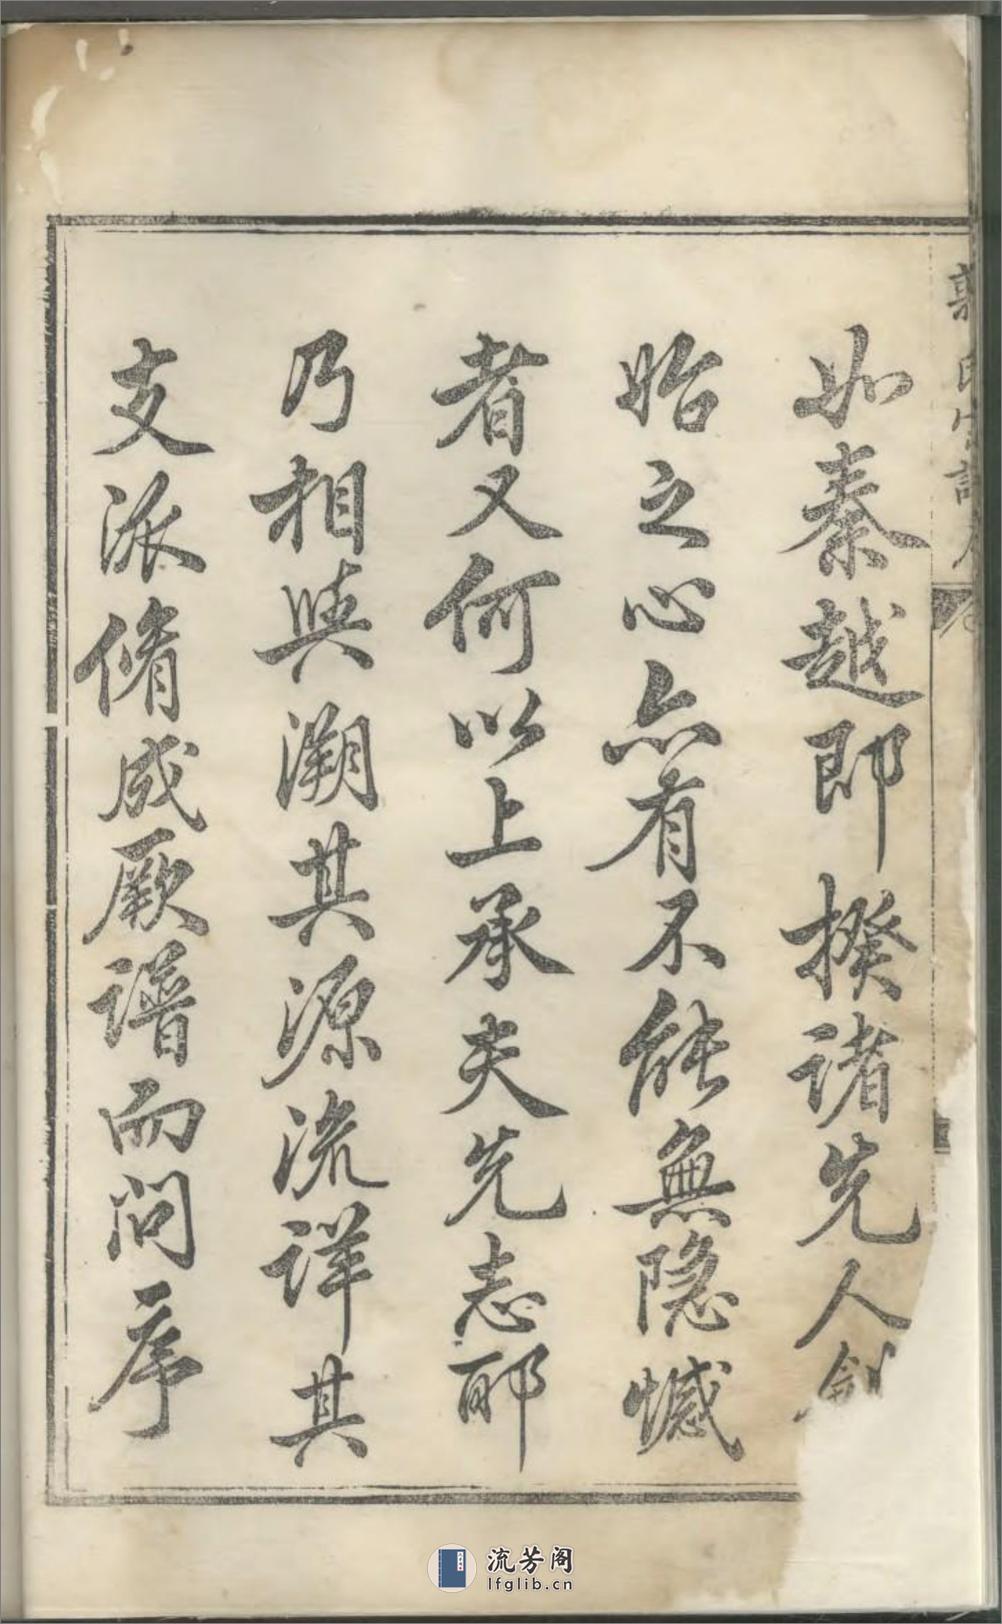 氏宗譜
如秦越即揆諸先人創
始之心亦有不能無隐憾
者又何以上承夫先志耶
乃相與溯其源流詳其
支派脩成厥譜而問序
流芳阁
lfglib.cn